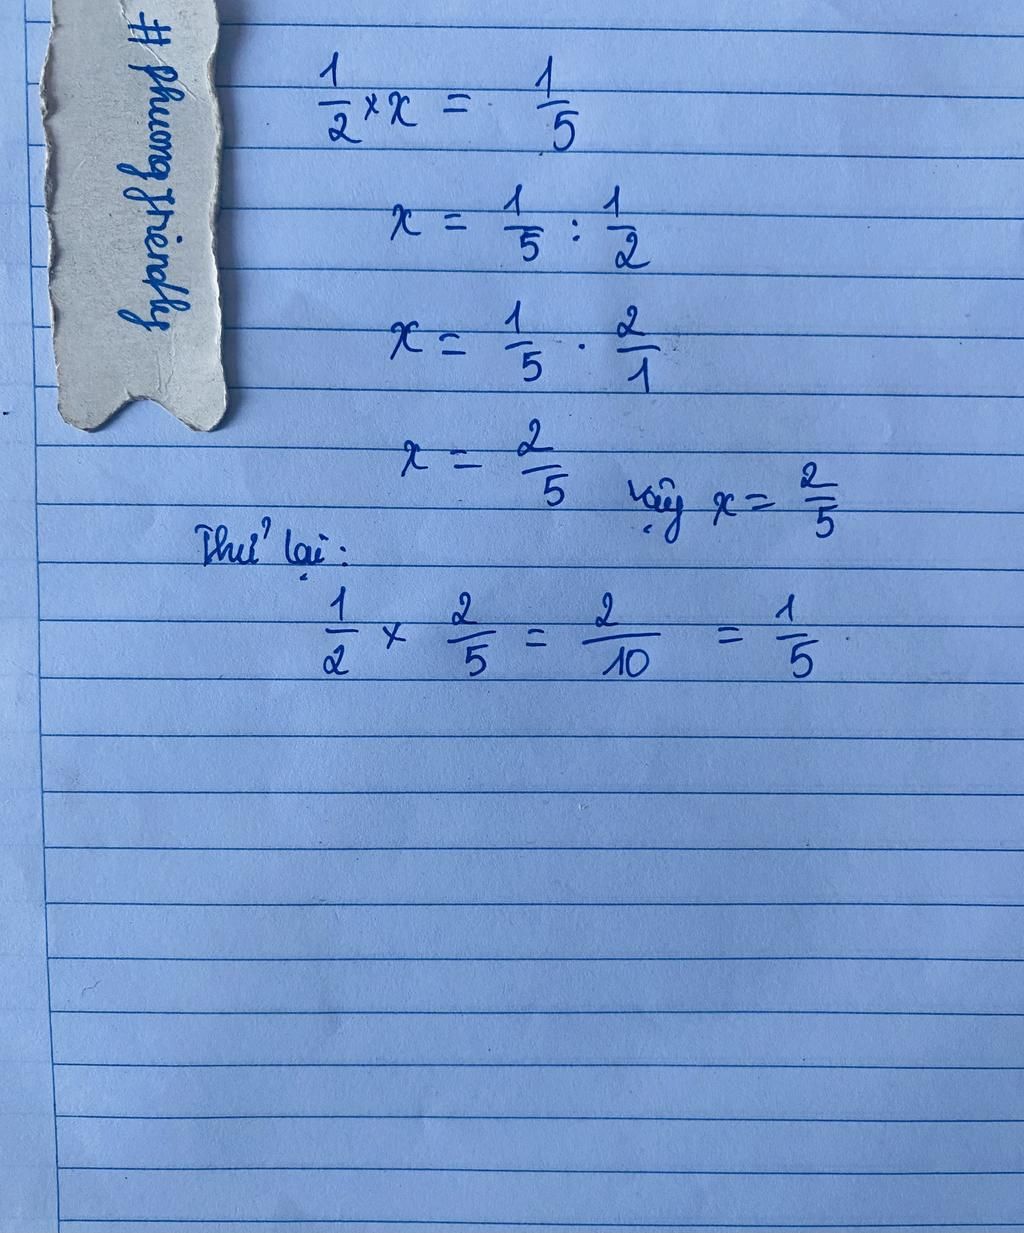 #phuongfriendly
1/2 × x = 1/5
x = 1/5 : 1/2
x = 1/5 . 2/1
x = 2/5 Vậy x = 2/5
Thử lại:
1/2 × 2/5 = 2/10 = 1/5